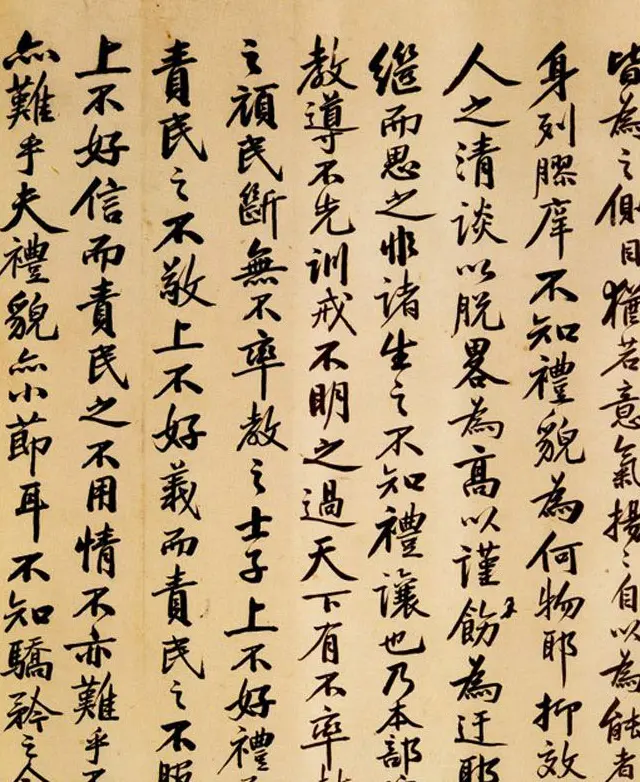 皆為之側目猶若意氣揚〻自以為能者
身列膠庠不知禮貌為何物耶抑效
人之清談以脱畧為高以謹飭為迂耶
繼而思之非諸生之不知禮讓也乃本部
教導不先訓戒不明之過天下有不率教
之頑民斷無不率教之士子上不好禮
責民之不敬上不好義而責民之不服
上不好信而責民之不用情不亦難乎
亦難乎夫禮貌亦小節耳不知驕矜之